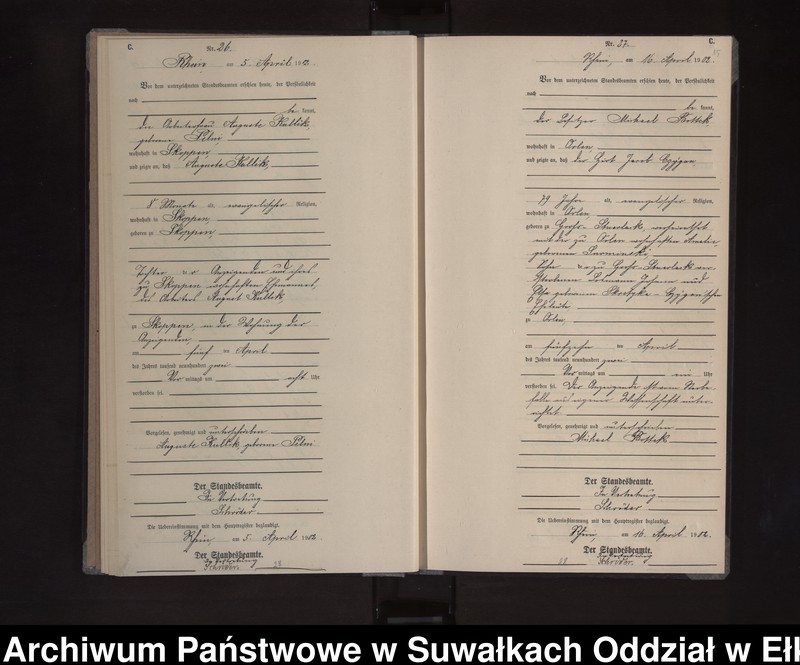 C.
Nr. 26.
Rhein, am 5. April 1902.
Vor dem unterzeichneten Standesbeamten erschien heute, der Persönlichkeit
nach
be kannt,
die Arbeiterfrau Auguste Kullik,
geborene
wohnhaft in Skoppen
und zeigte an, daß Auguste Kullik,
8 Monate alt, evangelischer Religion,
wohnhaft in Skoppen,
geboren zu Skoppen
Tochter der Anzeigenden und ihres
zu Skoppen wohnhaften Ehemannes,
des Arbeiters August Kullik
zu Skoppen, in der Wohnung der
Anzeigenden,
am fünf ten April
des Jahres tausend neunhundert zwei
Vor mittags um acht Uhr
verstorben sei.
Vorgelesen, genehmigt und unterschrieben
Auguste Kullik geborene
Der Standesbeamte.
In Vertretung
Schröder.
Die Uebereinstimmung mit dem Hauptregister beglaubigt.
Rhein, am 5. April 1902.
Der Standesbeamte.
In Vertretung
Schröder.
C.
Nr. 27.
Rhein, am 16. April 1902.
Vor dem unterzeichneten Standesbeamten erschien heute, der Persönlichkeit
nach
be kannt,
der Besitzer Michael Bottek
wohnhaft in Orlen
und zeigte an, daß der Hirt Jacob Czygan,
79 Jahre alt, evangelischer Religion,
wohnhaft in Orlen,
geboren zu Groß-, verheirathet
mit der zu Orlen wohnhaften
geborenen
Sohn der zu Groß- ver-
storbenen Johann und
geborenen Czygan'schen
Eheleute
zu Orlen,
am fünfzehn ten April
des Jahres tausend neunhundert zwei
Vor mittags um ein Uhr
verstorben sei. Der Anzeigende ist vom Sterbe-
falle aus eigener Wissenschaft unter-
richtet
Vorgelesen, genehmigt und unterschrieben
Michael Bottek
Der Standesbeamte.
In Vertretung
Schröder
Die Uebereinstimmung mit dem Hauptregister beglaubigt.
Rhein, am 16. April 1902.
Der Standesbeamte.
In Vertretung
Schröder.
Archiwum Państwowe w Suwałkach Oddział w Ełk